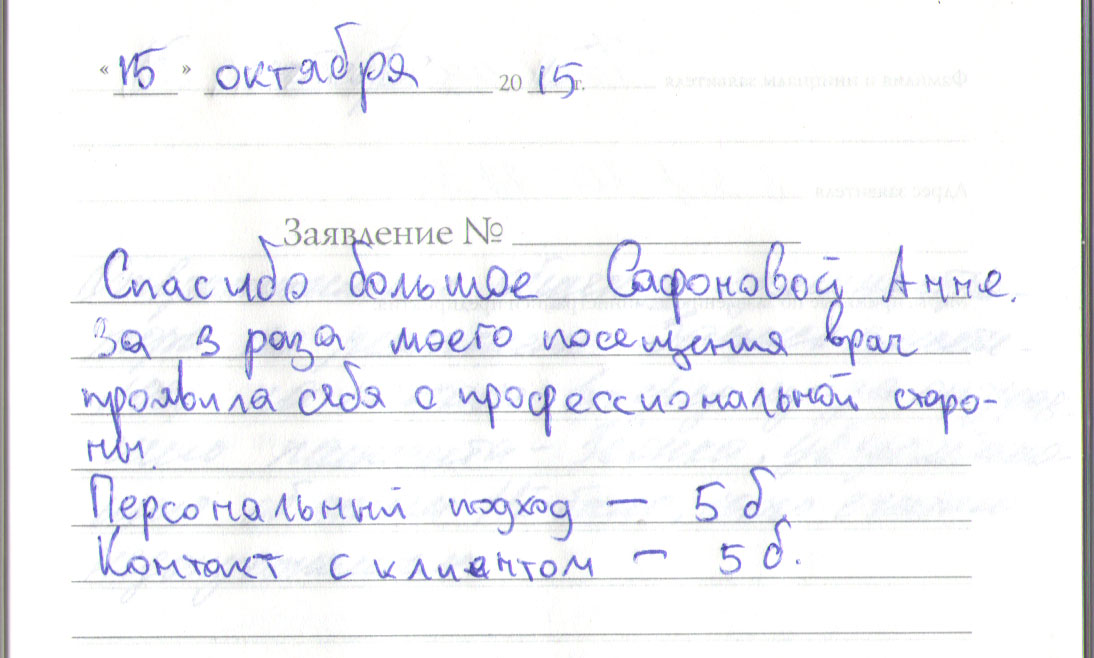 « 15 » октября 2015 г.
Заявление №
Спасибо большое Сафоновой Анне.
За 3 раза моего посещения врач
проявила себя с профессиональной сторо-
ны.
Персональный подход – 5 б.
Контакт с клиентом – 5 б.